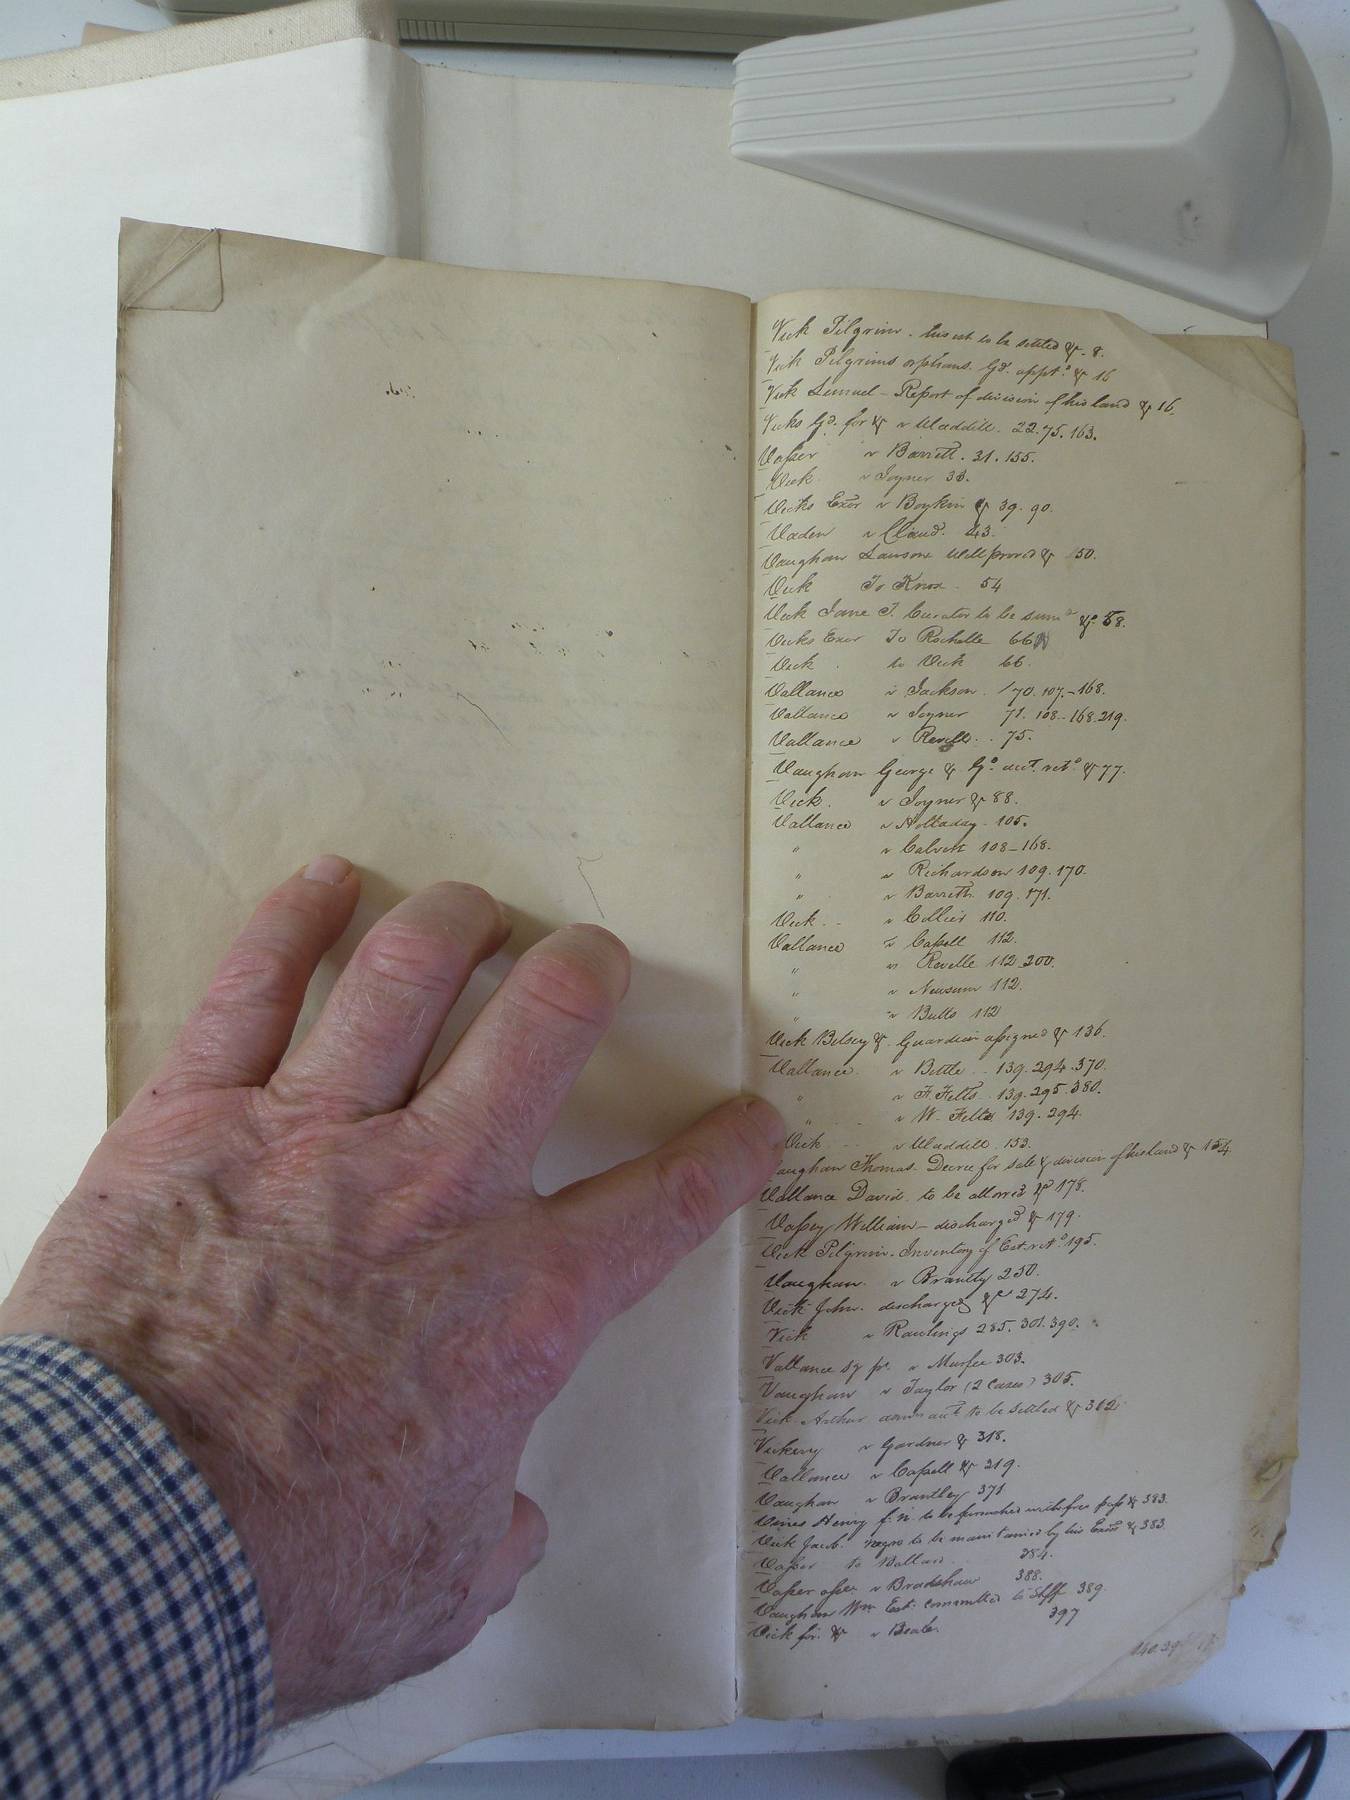 Vick Pilgrim. his est to be settled &c. 8.
Vick Pilgrims orphans. Gd. apptd. &c 16
Vick Lemuel - Report of division of his land &c 16.
Vicks Gd. for &c v Waddill. 22. 75. 163.
Vasser v Barrett. 31. 155.
Vick v Joyner 33.
Vicks Exor v Boykin &c 39. 90.
Vaden v Claud. 43.
Vaughan Lawson. Will proved &c 50.
Vick To Knox. 54
Vick Jane T. Curator to be sumd. &c. 58.
Vicks Exor To Rochelle 66
Vick to Vick 66.
Vallance v Jackson. 70. 107.-168.
Vallance v Joyner 71. 108-168.219.
Vallance v Revelle. 75.
Vaughan George & Gd. acct. retd. &c 77.
Vick. v Joyner &c 88.
Vallance v Holladay. 105.
" v Calvert 108-168.
" v Richardson 109. 170.
" v Barrett. 109. 171.
Vick v Collier 110.
Vallance v Capell 112.
" v Revelle 112.200.
" v Newsum 112.
" v Butts 112
Vick Betsey &c. Guardian assigned &c 136.
Vallance. v Bittle. 139. 294. 370.
" v F. Felts. 139. 295. 380.
" v W. Felts 139. 294.
Vick v Waddill. 153.
aughan Thomas. Decree for sale & division of his land &c 154.
Vallance David. to be allowed &c 178.
Vassey William - discharged &c 179.
Vick Pilgrim. Inventory of Est. retd. 195.
Vaughan. v Brantly 250.
Vick John. discharged &c 274.
Vick v Rawlings 285. 301. 390.
Vallance sy pr. v Murfee 303.
Vaughan v Taylor (2 Cases) 305.
Vick Arthur admn. act to be settled &c 312
Vickery v Gardner &c 318.
Vallance v Capell &c 319.
Vaughan v Brantley 371.
Vines Henry f. n. to be furnished with free pass &c 383.
Vick Jacob. negro to be maintained by his Exors &c 383.
Vasser to Ballard 384.
Vasser assee. v Bradshaw 388.
Vaughan Wm Est. committed to Shff 389.
Vick for. &c v Beale. 397
140.29